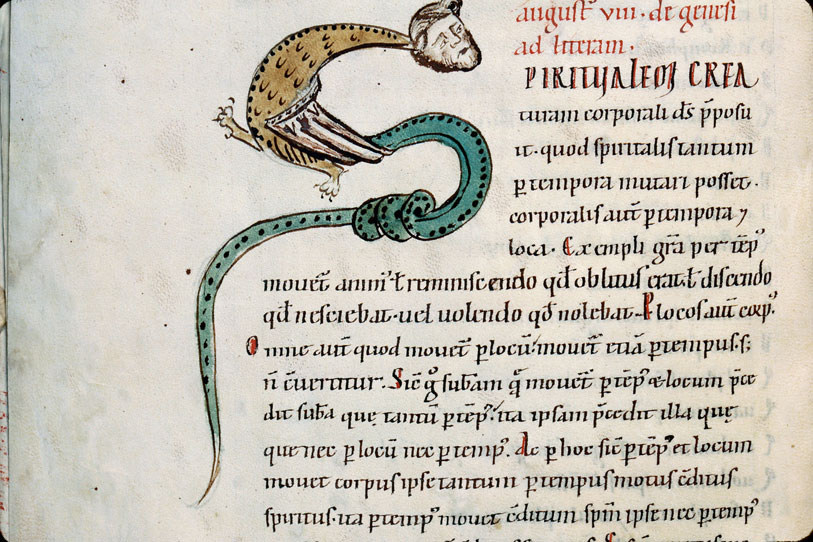 august̄ viii. de genesi
ad literam.
PIRITUALEM CREA
turam corporali d̄s p̄posu
it. quod spiritalis tantum
ꝑ tempora mutari posset.
corporalis aut̄ ꝑ tempora ⁊
loca. Exempli gr̄a per tēpꝰ
mouet̄ animꝰ ł reminiscendo qđ oblitus erat. ł discendo
qđ nesciebat. uel uolendo qđ nolebat. P locos aut̄ corpꝰ.
Omne aut̄ quod mouet̄ ꝑ locū. mouet̄ etiā ꝑ tempus. s;
n̄ c̄uertitur. Sic̄ g̊ subam q̄ mouet̄ ꝑ tēpꝰ & locum p̄ce
dit suba quę tantū ꝑ tēpꝰ. ita ipsam p̄cedit illa quę
que nec ꝑ locū nec ꝑ tempꝰ. Ac ꝑ hoc sic̄ ꝑ tēpꝰ et locum
mouet corpus ipse tantum ꝑ tempus motus c̄ditus
spiritus. ita ꝑ tempꝰ mouet c̄ditum spm̄ ipse nec ꝑ tempꝰ